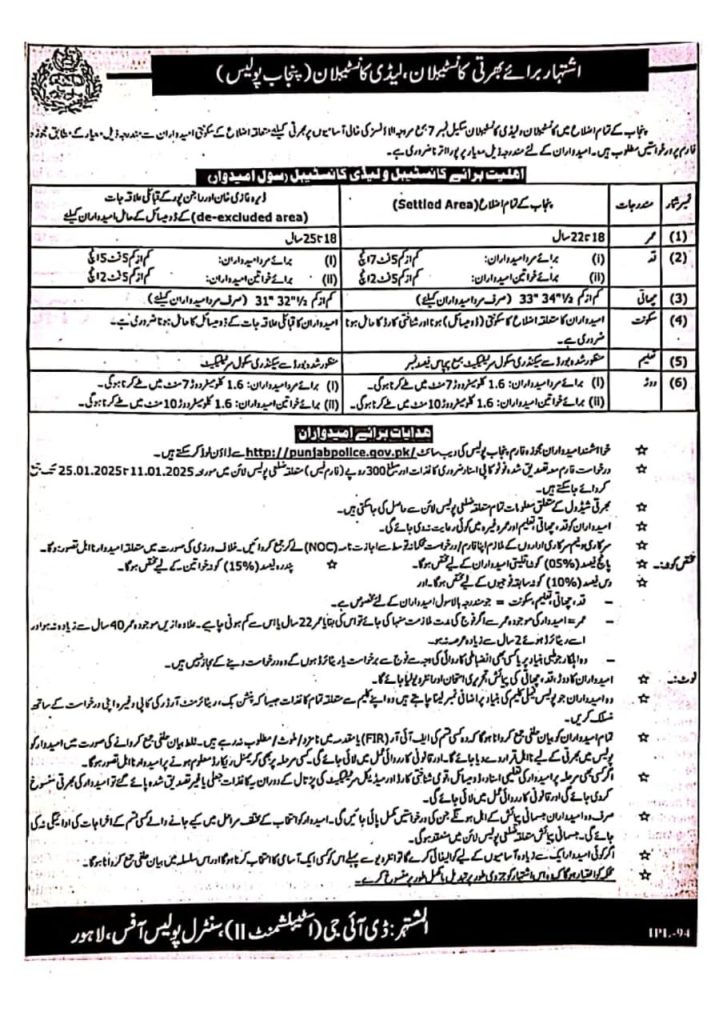 اشتہار برائے بھرتی کانسٹیبلان، لیڈی کانسٹیبلان (پنجاب پولیس)
پنجاب کے تمام اضلاع میں کانسٹیبلان، لیڈی کانسٹیبلان سکیل نمبر 7 بمع مروجہ الاؤنسز کی خالی آسامیوں پر بھرتی کیلئے متعلقہ اضلاع کے سکونتی امیدواران سے مندرجہ ذیل معیار کے مطابق مجوزہ
فارم پر درخواستیں مطلوب ہیں۔ امیدواران کے لئے مندرجہ ذیل معیار پر پورا اترنا ضروری ہے۔
اھلیت برائے کانسٹیبل و لیڈی کانسٹیبل (رسول امیدوار)
نمبر شمار مندرجات پنجاب کے تمام اضلاع (Settled Area) ڈیرہ غازی خان اور راجن پور کے قبائلی علاقہ جات
(de-excluded area) کے ڈومیسائل کے حامل امیدواران کیلئے
(1) عمر 18 تا 22 سال 18 تا 25 سال
(2) قد (i) برائے مرد امیدواران: کم از کم 5 فٹ 7 انچ (i) برائے مرد امیدواران: کم از کم 5 فٹ 5 انچ
(ii) برائے خواتین امیدواران: کم از کم 5 فٹ 2 انچ (ii) برائے خواتین امیدواران: کم از کم 5 فٹ 2 انچ
(3) چھاتی کم از کم 33" 34½" (صرف مرد امیدواران کیلئے) کم از کم 31" 32½" (صرف مرد امیدواران کیلئے)
(4) سکونت امیدواران کا متعلقہ اضلاع کا سکونتی (ڈومیسائل) ہونا اور شناختی کارڈ کا حامل ہونا ضروری ہے۔ امیدواران کا قبائلی علاقہ جات کے ڈومیسائل کا حامل ہونا ضروری ہے۔
(5) تعلیم منظور شدہ بورڈ سے سیکنڈری سکول سرٹیفکیٹ بمع پچاس فیصد نمبر منظور شدہ بورڈ سے سیکنڈری سکول سرٹیفکیٹ
(6) دوڑ (i) برائے مرد امیدواران: 1.6 کلومیٹر دوڑ 7 منٹ میں طے کرنا ہوگی۔ (i) برائے مرد امیدواران: 1.6 کلومیٹر دوڑ 7 منٹ میں طے کرنا ہوگی۔
(ii) برائے خواتین امیدواران: 1.6 کلومیٹر دوڑ 10 منٹ میں طے کرنا ہوگی۔ (ii) برائے خواتین امیدواران: 1.6 کلومیٹر دوڑ 10 منٹ میں طے کرنا ہوگی۔
ھدایات برائے امیدواران
خواہشمند امیدواران مجوزہ فارم پنجاب پولیس کی ویب سائٹ http://punjabpolice.gov.pk/ سے ڈاؤن لوڈ کر سکتے ہیں۔
درخواست فارم معہ تصدیق شدہ فوٹو کاپی اسناد ضروری کاغذات اور مبلغ 300 روپے (فارم فیس) متعلقہ ضلعی پولیس لائن میں مورخہ 11.01.2025 تا 25.01.2025 تک جمع
کروائے جا سکتے ہیں۔
بھرتی شیڈول کے متعلق معلومات تمام متعلقہ ضلعی پولیس لائن سے حاصل کی جا سکتی ہیں۔
امیدواران کو قد، چھاتی، تعلیم اور عمر وغیرہ میں کوئی رعایت نہ دی جائے گی۔
سرکاری و نیم سرکاری اداروں کے ملازم اپنا فارم/درخواست محکمانہ توسط سے اجازت نامہ (NOC) لے کر جمع کروائیں۔ خلاف ورزی کی صورت میں متعلقہ امیدوار نااہل تصور ہوگا۔
مختص کوٹہ:۔ پانچ فیصد (05%) کوٹہ اقلیتی امیدواران کے لیے مختص ہوگا۔ پندرہ فیصد (15%) کوٹہ خواتین کے لیے مختص ہوگا۔
دس فیصد (10%) کوٹہ سابقہ فوجیوں کے لیے مختص ہوگا۔ اور
- قد، چھاتی، تعلیم، سکونت = جو مندرجہ بالا سول امیدواران کے لئے مخصوص ہے۔
- عمر = امیدوار کی موجودہ عمر سے اگر فوج کی مدت ملازمت منہا کی جائے تو اس کی بقایا عمر 22 سال یا اس سے کم ہونی چاہیے۔ علاوہ ازیں موجودہ عمر 40 سال سے زیادہ نہ ہو اور
اسے ریٹائرڈ ہوئے 2 سال سے زیادہ عرصہ نہ ہو۔
- وہ اہلکار جو طبی بنیاد پر یا کسی بھی انضباطی کارروائی کی وجہ سے فوج سے برخاست یا ریٹائرڈ ہوں گے وہ درخواست دینے کے مجاز نہیں ہیں۔
نوٹ:۔ امیدواران کا دوڑ، قد، چھاتی کی پیمائش، تحریری امتحان اور انٹرویو لیا جائے گا۔
وہ امیدواران جو پولیس فیملی کلیم کی بنیاد پر اضافی نمبر لینا چاہتے ہیں وہ اپنے کلیم سے متعلقہ تمام کاغذات جیسا کہ پنشن بک، ریٹائرمنٹ آرڈر کی کاپی وغیرہ اپنی درخواست کے ساتھ
منسلک کریں۔
تمام امیدواران کو بیان حلفی جمع کروانا ہوگا کہ وہ کسی قسم کی ایف آئی آر (FIR) یا مقدمہ میں نامزد/ملوث/مطلوب نہ رہے ہیں۔ غلط بیان حلفی جمع کروانے کی صورت میں امیدوار کو
پولیس میں بھرتی کے لیے نااہل قرار دے دیا جائے گا۔ اور قانونی کارروائی عمل میں لائی جائے گی۔ کسی مرحلہ پر بھی کریمنل ریکارڈ معلوم ہونے پر امیدوار نااہل تصور ہوگا۔
اگر کسی بھی مرحلہ پر امیدوار کی تعلیمی اسناد، ڈومیسائل، قومی شناختی کارڈ اور میڈیکل سرٹیفکیٹ کی پڑتال کے دوران یہ کاغذات جعلی یا غیر تصدیق شدہ پائے گئے تو امیدوار کی بھرتی منسوخ
کر دی جائے گی اور قانونی کارروائی عمل میں لائی جائے گی۔
صرف وہ امیدواران جسمانی پیمائش کے اہل ہوں گے جن کی درخواستیں مکمل پائی جائیں گی۔ امیدوار کو انتخاب کے مختلف مراحل میں کیے جانے والے کسی قسم کے اخراجات کی ادائیگی نہ کی
جائے گی۔ جسمانی پیمائش متعلقہ ضلعی پولیس لائن میں منعقد ہوگی۔
اگر کوئی امیدوار ایک سے زیادہ آسامیوں کے لیے کوالیفائی کرے گا تو انٹرویو سے پہلے اس کو کسی ایک آسامی کا انتخاب کرنا ہوگا اور اس سلسلہ میں بیان حلفی جمع کروانا ہوگا۔
محکمہ کو اختیار ہوگا کہ وہ اس اشتہار کو جزوی طور پر تبدیل یا مکمل طور پر منسوخ کرے۔
المشتہر: ڈی آئی جی (اسٹیبلشمنٹ II) سنٹرل پولیس آفس، لاہور
IPL-94